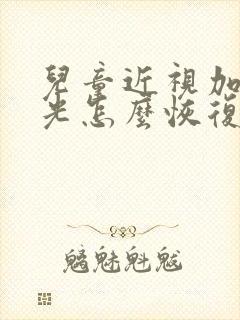 兒童近視加
光怎麼恢復
魑魅魁魃